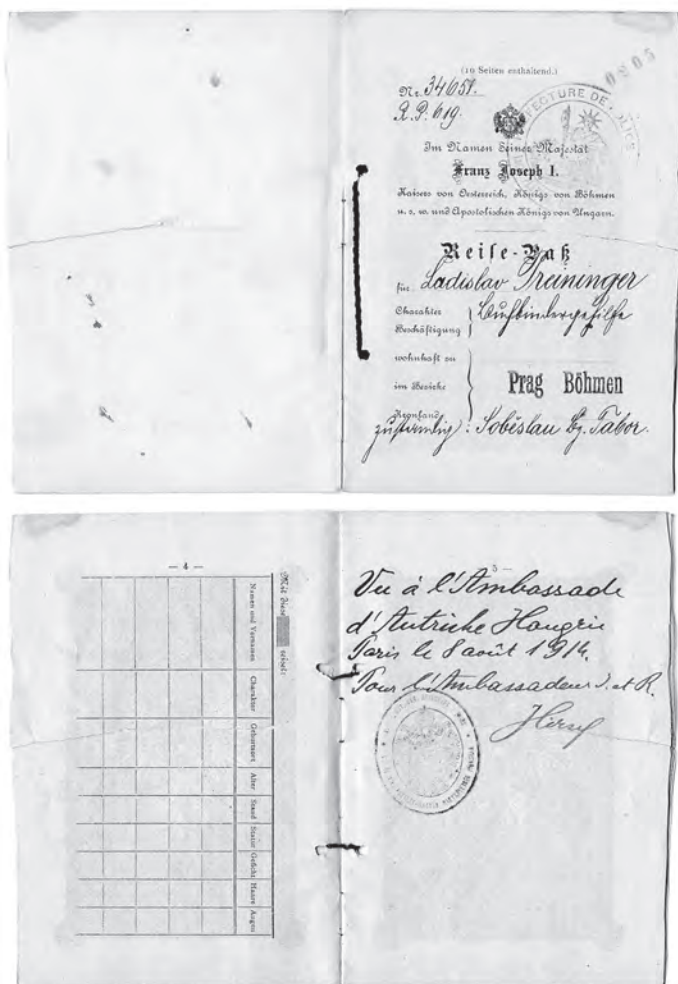 (16 Seiten enthaltend.)
0205
Nr. 34651.
R. P. 619.
PREFECTURE DE POLICE
Im Namen Seiner Majestät
Franz Joseph I.
Kaisers von Oesterreich, Königs von Böhmen
u. s. w. und Apostolischen Königs von Ungarn.
Reise-Paß
für Ladislav Preininger
Charakter
Beschäftigung } Buchbindergehilfe
wohnhaft zu
im Bezirke } Prag Böhmen
Kronland
zuständig: Soběslau Bz. Tabor.
— 4 —
Mit diese reiset:
Namen und Vornamen Charakter Geburtsort Alter Stand Statur Gesicht Haare Augen
5 —
Vu à l'Ambassade
d'Autriche Hongrie
Paris le 8 août 1914.
Pour l'Ambassadeur I. et R.